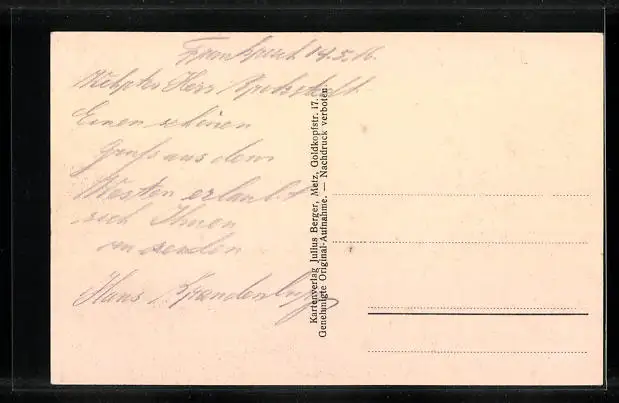 Frankreich 14.5.16.
Herr
Einen schönen
Gruß aus dem
Westen erlaubt
sich Ihnen
zu senden
Hans Brandenburg
Kartenverlag Julius Berger, Metz, Goldkopfstr. 17.
Genehmigte Original-Aufnahme. — Nachdruck verboten.